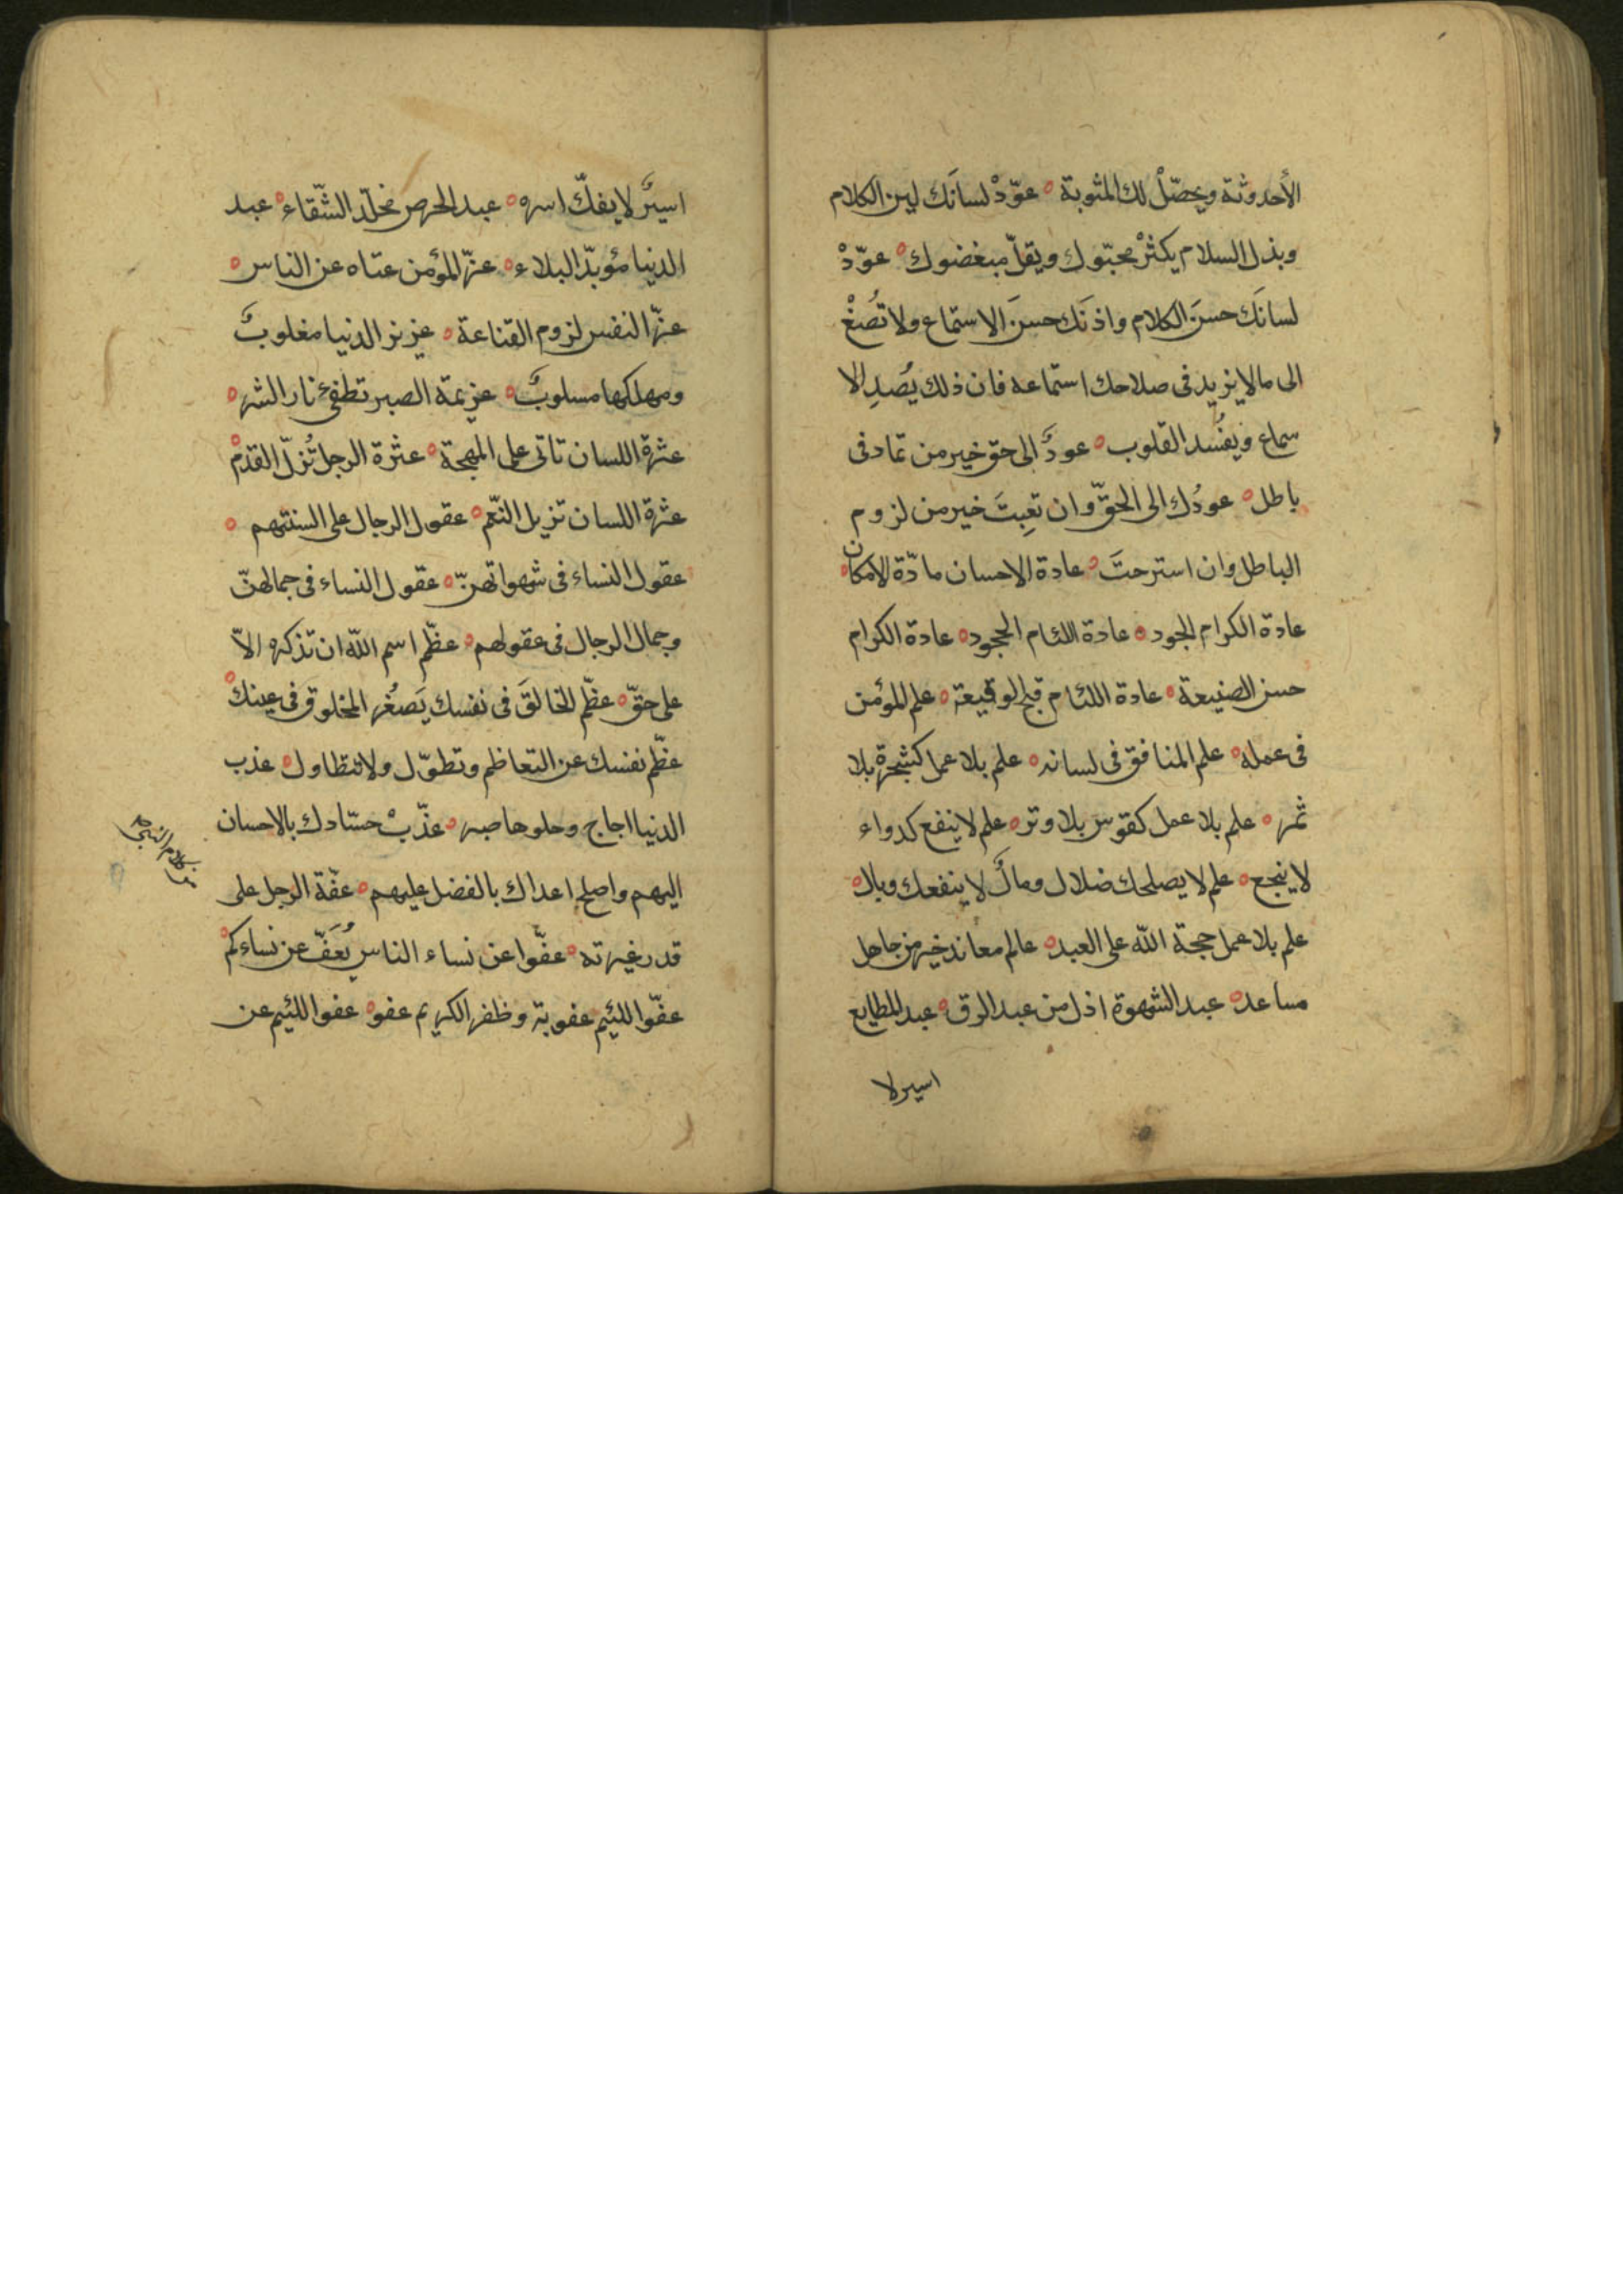 الأحدوثة ويحصّلْ لك المثوبة ه عوّدْ لسانَك لين الكلام
وبذل السلام يكثرْ محبّوك ويقلّ مبغضوك ه عوّدْ
لسانَك حسنَ الكلام واذنَك حسنَ الاستماع ولا تُصغْ
الى مالا يزيد فى صلاحك استماعه فان ذلك يُصدِ الا
سماع ويفسُد القلوب ه عودٌ الى حق خير من تماد فى
باطل ه عودُك الى الحقّ وان تعِبتَ خير من لزوم
الباطل وان استرحتَ ه عادة الاحسان مادّة الامكان ه
عادة الكرام الجود ه عادة اللئام الجحود ه عادة الكرام
حسن الصنيعة ه عادة اللئام قبح الوقيعة ه علم المؤمن
فى عمله ه علم المنافق فى لسانه ه علم بلا عمل كشجرة بلا
ثمر ه علم بلا عمل كقوس بلا وتر ه علم لا ينفع كدواء
لا ينجع ه علم لا يصلحك ضلال ومالٌ لا ينفعك وبال ه
علم بلا عمل حجة الله على العبد ه عالم معاند خير من جاهل
مساعد ه عبد الشهوة اذل من عبد الرق ه عبد المطامع
اسير لا
اسيرٌ لا يفكّ اسره ه عبد الحرص مخلّد الشّقاء ه عبد
الدنيا مؤبدّ البلاء ه عزّ المؤمن غناه عن الناس ه
عزّ النفس لزوم القناعة ه عزيز الدنيا مغلوبٌ
ومهلكها مسلوبٌ ه عزيمة الصبر تطفئ نار الشره
عثرة اللسان تاتى على المهجة ه عثرة الرجل تُزلّ القدمْ
عثرة اللسان تزيل النّعم ه عقول الرجال على السنتهم ه
عقول النساء فى شهواتهنّ ه عقول النساء فى جمالهنّ
وجمال الرجال فى عقولهم ه عظّم اسم اللّه ان تذكره الاّ
على حقّ ه عظّم الخالقَ فى نفسك يَصغُر المخلوق فى عينك ه
عظّم نفسك عن التعاظم وتطوّل ولا تتطاول ه عذب
الدنيا اجاج وحلوها صبر ه عذّبْ حسّادك بالاحسان
اليهم واصلح اعداك بالفضل عليهم ه عفّة الرجل على
قدر غيرته ه عفّوا عن نساء الناس يُعَفّ عن نساءكم ه
عفّوا اللئيم عفوبة وظفر الكريم عفو ه عفوا اللئيم عن